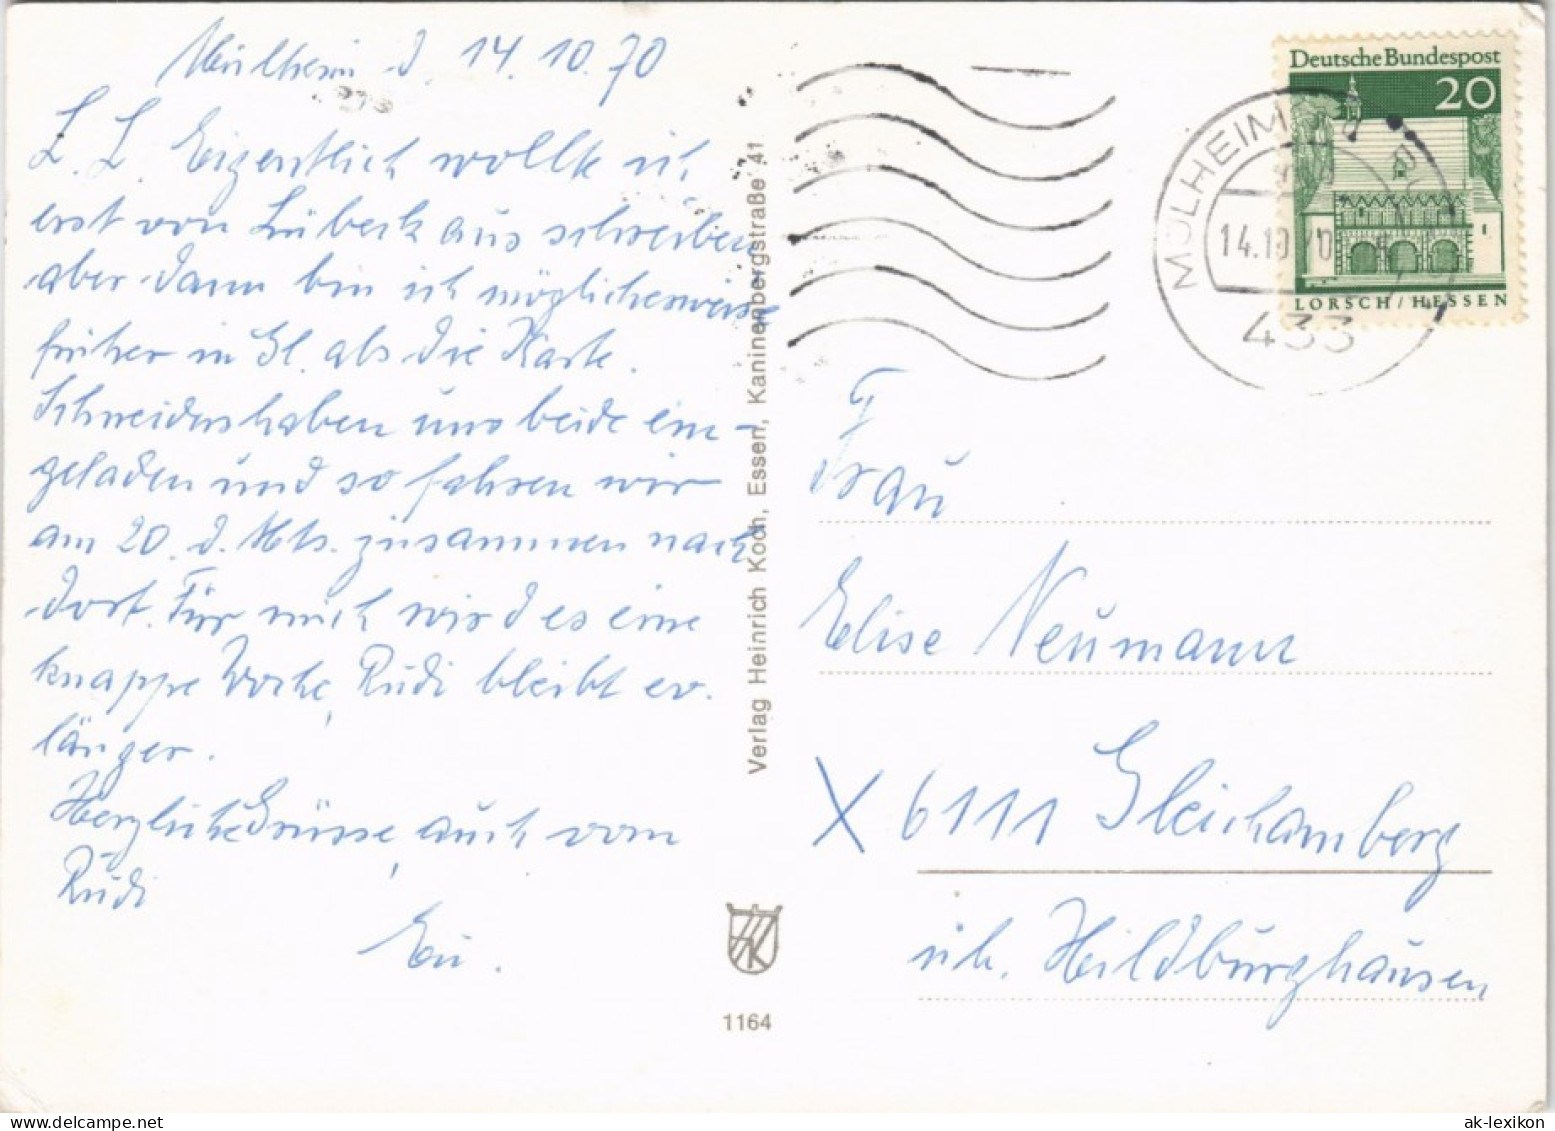 Mülheim d. 14.10.70
L. L. Eigentlich wollte ich
erst von Lübeck aus schreiben
aber dann bin ich möglicherweise
früher in Gl. als die Karte.
Schneiders haben uns beide ein-
geladen und so fahren wir
am 20. d. Mts. zusammen nach
dort. Für mich wird es eine
knappe Woche, Rudi bleibt ev.
länger.
Herzliche Grüsse, auch vom
Rudi
Verlag Heinrich Koch, Essen, Kaninenbergstraße 41
1164
Deutsche Bundespost
20
LORSCH / HESSEN
MÜLHEIM
14.10.70
433
Frau
Elise Neumann
X 6111 Gleichamberg
üb. Hildburghausen
ak-lexikon